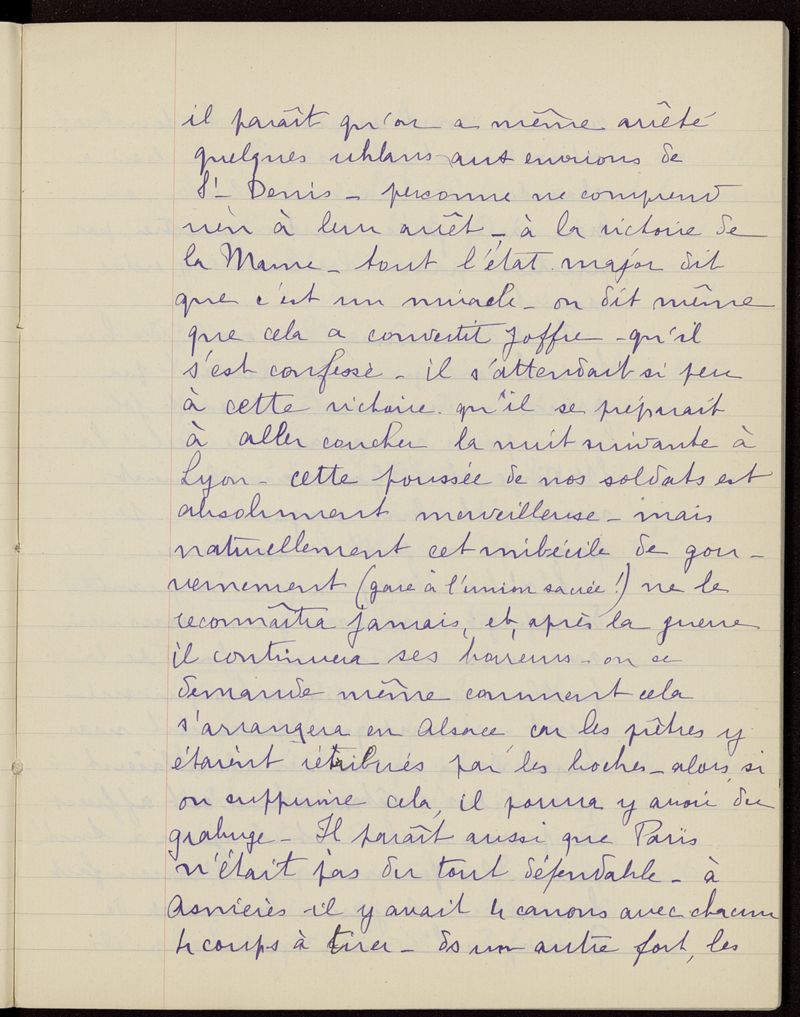 il paraît qu'on a même arrêté
quelques uhlans aux environs de
St Denis - personne ne comprend
rien à leur arrêt - à la victoire de
la Marne - tout l'état major dit
que c'est un miracle - on dit même
que cela a convertit Joffre - qu'il
s'est confessé - il s'attendait si peu
à cette victoire qu'il se préparait
à aller coucher la nuit suivante à
Lyon - cette poussée de nos soldats est
absolument merveilleuse - mais
naturellement cet imbécile de gou-
vernement (gare à l'union sacrée !) ne le
reconnaîtra jamais, et, après la guerre
il continuera ses horreurs - on se
demande même comment cela
s'arrangera en Alsace car les prêtres y
étaient rétribués par les boches - alors, si
on supprime cela, il pourra y avoir du
grabuge - Il paraît aussi que Paris
n'était pas du tout défendable - à
Asnières il y avait 4 canons avec chacun
4 coups à tirer - ds un autre fort, les